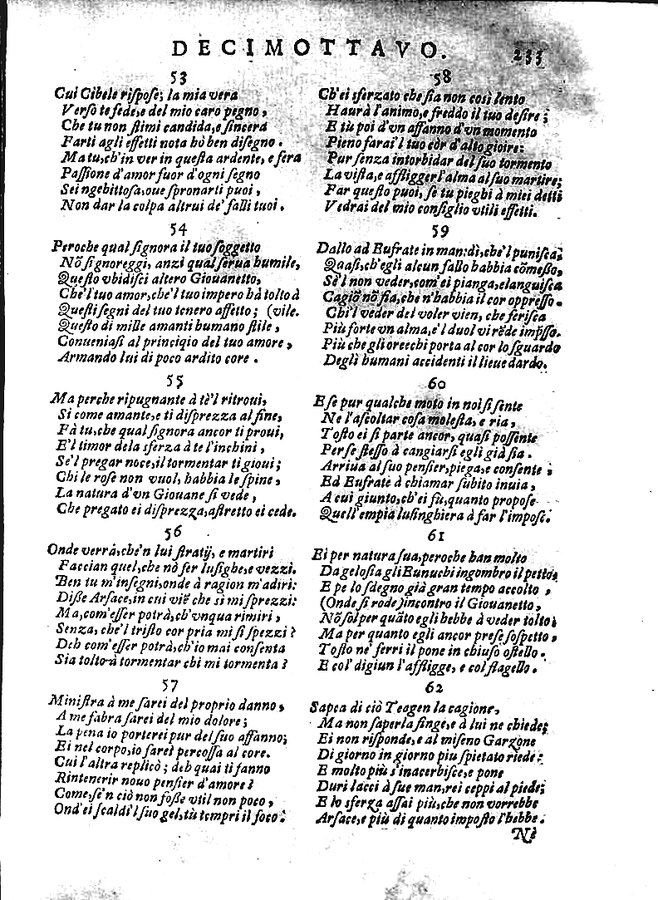 DECIMOTTAVO. 233
53
Cui Cibele riſpoſe; la mia vera
Verſo te fede, e del mio caro pegno,
Che tu non ſtimi candida, e ſincera
Farti agli effetti nota hò ben diſegno.
Ma tu, ch'in ver in queſta ardente, e fera
Paſſione d'amor fuor d'ogni ſegno
Sei ngebittoſa, oue ſpronarti puoi,
Non dar la colpa altrui de' falli tuoi.
54
Peroche qual ſignora il tuo ſoggetto
Nõ ſignoreggi, anzi qual ſerua humile,
Queſto vbidiſci altero Giouanetto,
Che'l tuo amor, che'l tuo impero hà tolto à
Queſti ſegni del tuo tenero affetto; (vile.
Queſto di mille amanti humano ſtile,
Conueniaſi al principio del tuo amore,
Armando lui di poco ardito core.
55
Ma perche ripugnante à tè'l ritroui,
Si come amante, e ti diſprezza al fine,
Fà tu, che qual ſignora ancor ti proui,
E'l timor de la sferza à te l'inchini,
Se'l pregar noce, il tormentar ti gioui;
Chi le roſe non vuol, habbia le ſpine,
La natura d'vn Giouane ſi vede,
Che pregato ei diſprezza, aſtretto ei cede.
56
Onde verrà, che'n lui ſtratij, e martiri
Faccian quel, che nõ fer luſighe, e vezzi.
Ben tu m'inſegni, onde à ragion m'adiri:
Diſſe Arſace, in cui viẽ che ſi mi ſprezzi:
Ma, com'eſſer potrà, ch'vnqua rimiri,
Senza, che'l triſto cor pria mi ſi ſpezzi?
Deh com'eſſer potrà, ch'io mai conſenta
Sia tolto à tormentar chi mi tormenta?
57
Miniſtra à me ſarei del proprio danno,
A me fabra ſarei del mio dolore;
La pena io porterei pur del ſuo affanno;
Ei nel corpo, io ſarei percoſſa al core.
Cui l'altra replicò; deh quai ti fanno
Rintenerir nouo penſier d'amore?
Come, ſe'n ciò non foſſe vtil non poco,
Ond'ei ſcaldi'l ſuo gel, tù tempri il foco?
58
Ch'ei sferzato che ſia non così lento
Haurà l'animo, e freddo il tuo deſire;
E tù poi d'vn affanno d'vn momento
Pieno farai'l tuo còr d'alto gioire:
Pur ſenza intorbidar del ſuo tormento
La viſta, e affligger l'alma al ſuo martire;
Far queſto puoi, ſe tu pieghi à miei detti
Vedrai del mio conſiglio vtili effetti.
59
Dallo ad Eufrate in man: dì, che'l puniſca;
Quaſi, ch'egli alcun fallo habbia cõmeſſo,
Se'l non veder, com'ei pianga, e languiſca
Cagiõ nõ ſia, che n'habbia il cor oppreſſo.
Ch'il veder del voler vien, che feriſca
Più forte vn alma, e'l duol vi rẽde impſſo.
Più che gli orecchi porta al cor lo ſguardo
Degli humani accidenti il lieue dardo.
60
E ſe pur qualche moto in noi ſi ſente
Ne l'aſcoltar coſa moleſta, e ria,
Toſto ei ſi parte ancor, quaſi poſſente
Per ſe ſteſſo à cangiarſi egli già ſia.
Arriua al ſuo penſier, piega, e conſente;
Ed Eufrate à chiamar ſubito inuia,
A cui giunto, ch'ei fù, quanto propoſe
Quell'empia luſinghiera à far l'impoſe.
61
Ei per natura ſua, peroche han molto
Da geloſia gli Eunuchi ingombro il petto,
E pe lo ſdegno già gran tempo accolto,
(Onde ſi rode) incontro il Giouanetto,
Nõ ſol per quãto egli hebbe à veder tolto;
Ma per quanto egli ancor preſe ſoſpetto,
Toſto ne' ferri il pone in chiuſo oſtello.
E col' digiun l'affligge, e col flagello.
62
Sapea di ciò Teagen la cagione,
Ma non ſaperla finge, e à lui ne chiede;
Ei non riſponde, e al miſero Garzone
Di giorno in giorno piu ſpietato riede:
E molto più s'inacerbiſce, e pone
Duri lacci à ſue man, rei ceppi al piede;
E lo sferza aſſai più, che non vorrebbe
Arſace, e più di quanto impoſto l'hebbe.
Ni